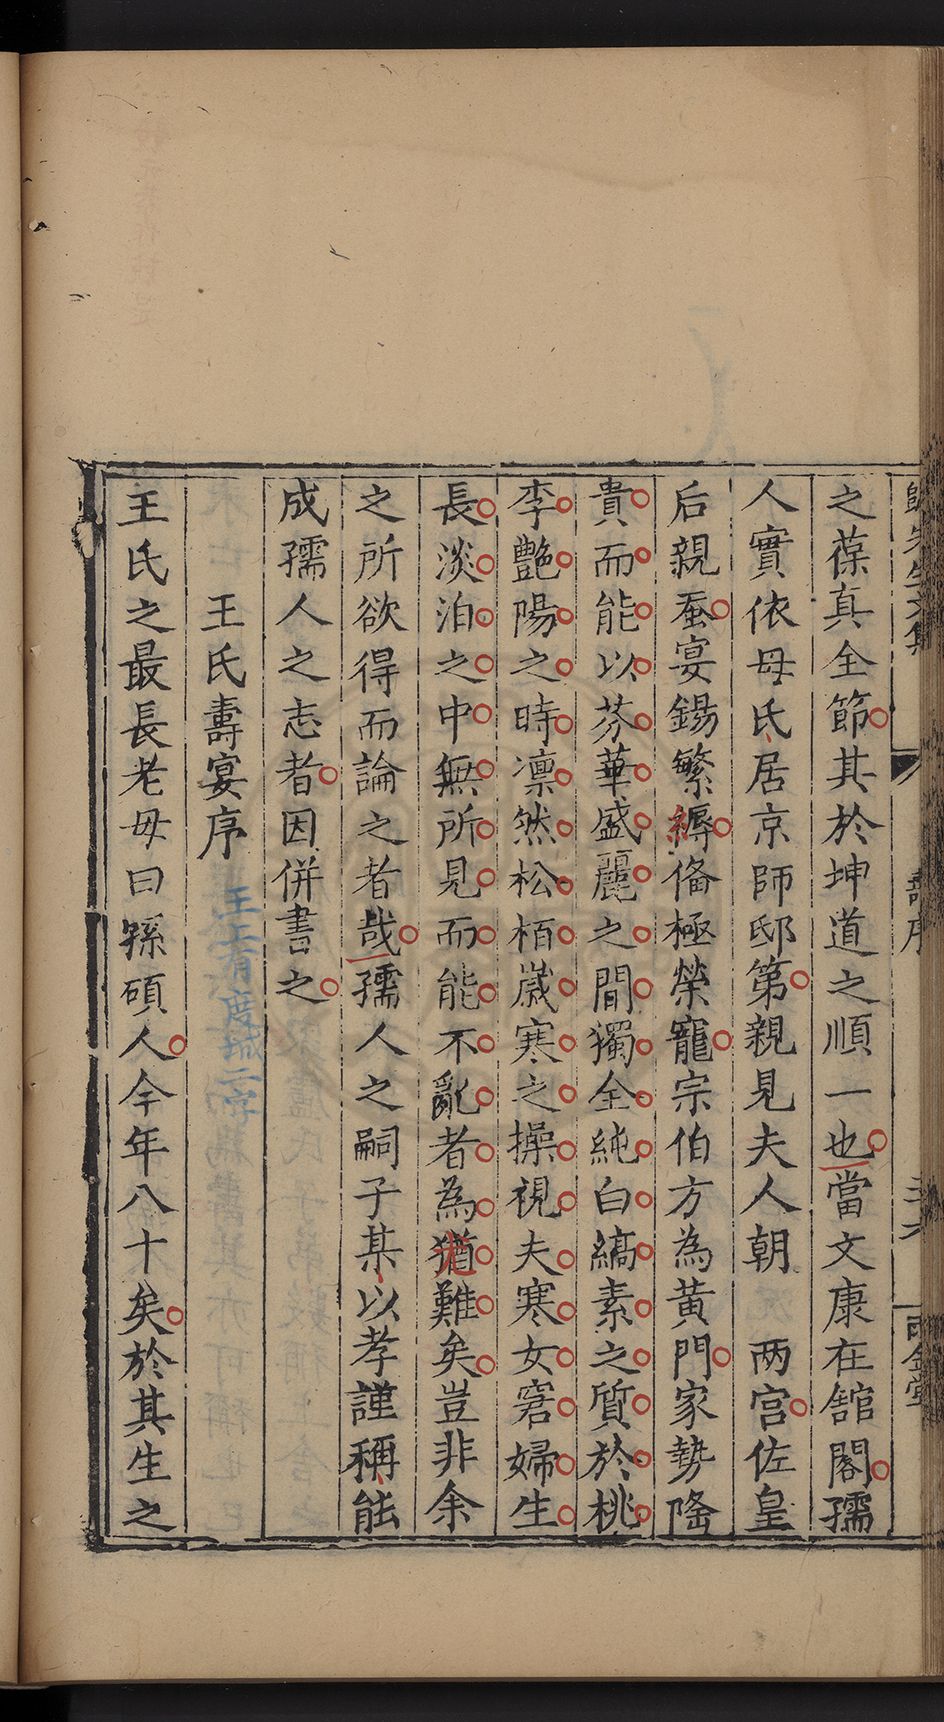 歸先生文集
壽序
兩金堂
之葆真全節其於坤道之順一也當文康在舘閣孺
人實依母氏居京師邸第親見夫人朝 两宫佐皇
后親蚕宴錫繁縟俻極榮寵宗伯方為黃門家勢隆
貴而能以芬華盛麗之間獨全純白縞素之質於桃
李艷陽之時凛然松栢歳寒之操視夫寒女窘婦生
長淡泊之中無所見而能不亂者為猶難矣豈非余
之所欲得而論之者哉孺人之嗣子某以孝謹稱能
成孺人之志者因併書之
王氏壽宴序
王氏之最長老母曰孫碩人今年八十矣於其生之